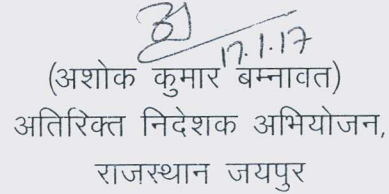 17.1.17
(अशोक कुमार बम्नावत)
अतिरिक्त निदेशक अभियोजन,
राजस्थान जयपुर